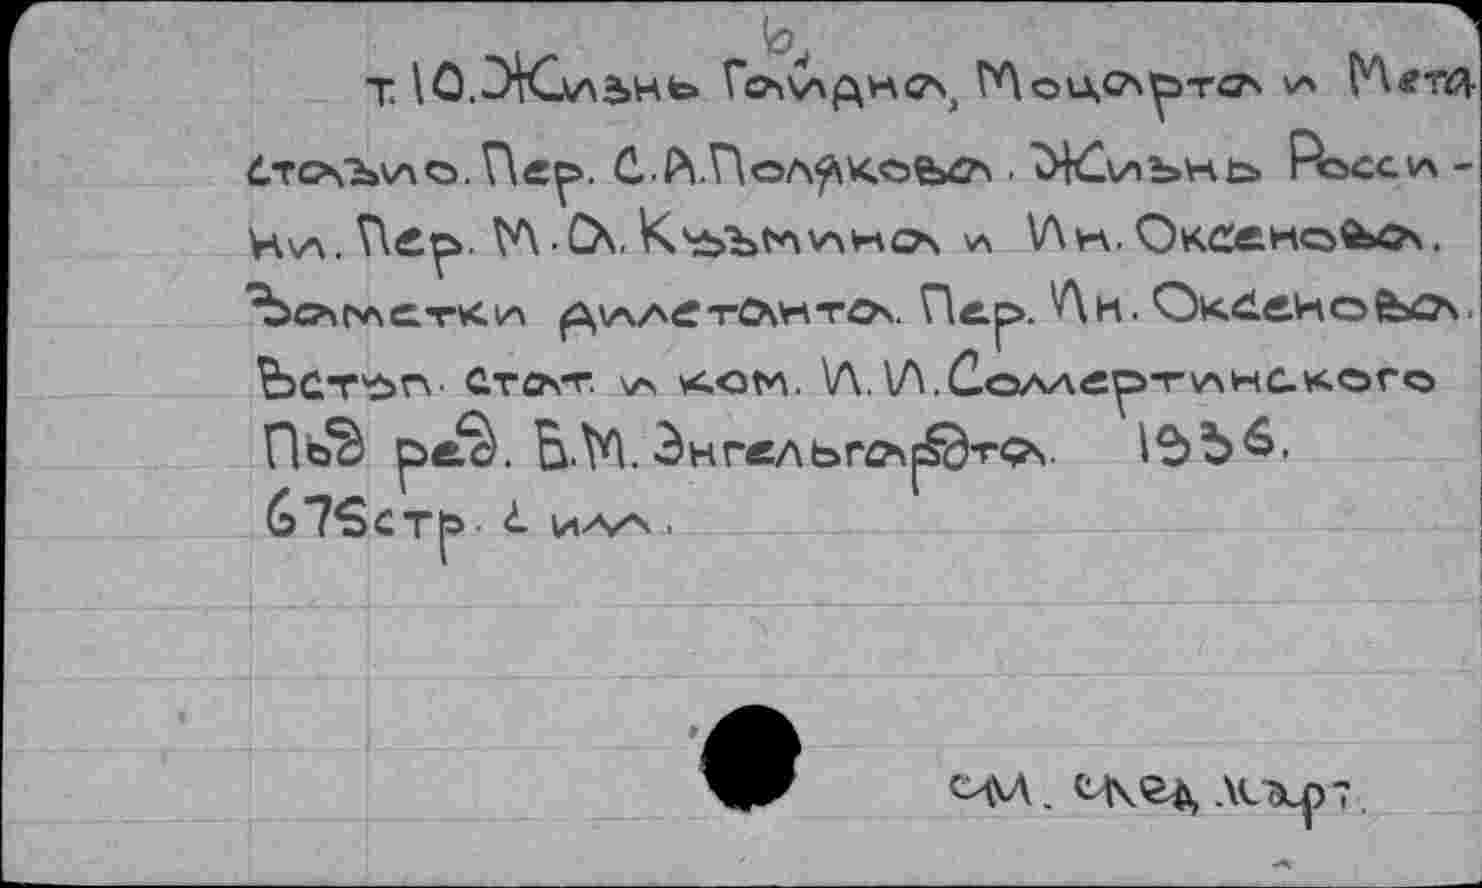 т.10.Жизнь Гайдна, Моцарта и Мета
стазио. Пер. С.А.Полякова. Жизнь Росси-
ни. Пер. М.А.Кузмина и Ин.Оксенова.
Заметки дилетанта. Пер. Ин.Оксенова.
Вступ. стат. и ком. И.И.Соллертинского
Под ред. Б.М.Энгельгардта. 1936.
675стр. с илл.
см. след. карт.